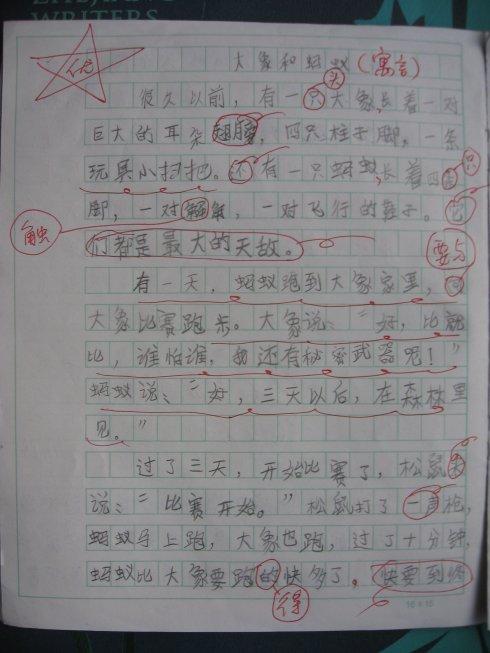 WRITERS
优
大象和蚂蚁(寓言)
头
很久以前,有一只大象,长着一对
巨大的耳朵,四只柱子脚,一条
玩具小扫把。还有一只蚂蚁,长着四
只
脚,一对触角,一对飞行的鞋子。它
触
们都是最大的天敌。
要与
有一天,蚂蚁跑到大象家里,
大象比赛跑步。大象说:“好,比就
比,谁怕谁,我还有秘密武器呢!”
蚂蚁说:“好,三天以后,在森林里
见。”
过了三天,开始比赛了,松鼠
说:“比赛开始。”松鼠打了一声枪,
蚂蚁马上跑,大象也跑,过了十分钟,
蚂蚁比大象要跑的快多了。快要到终
得